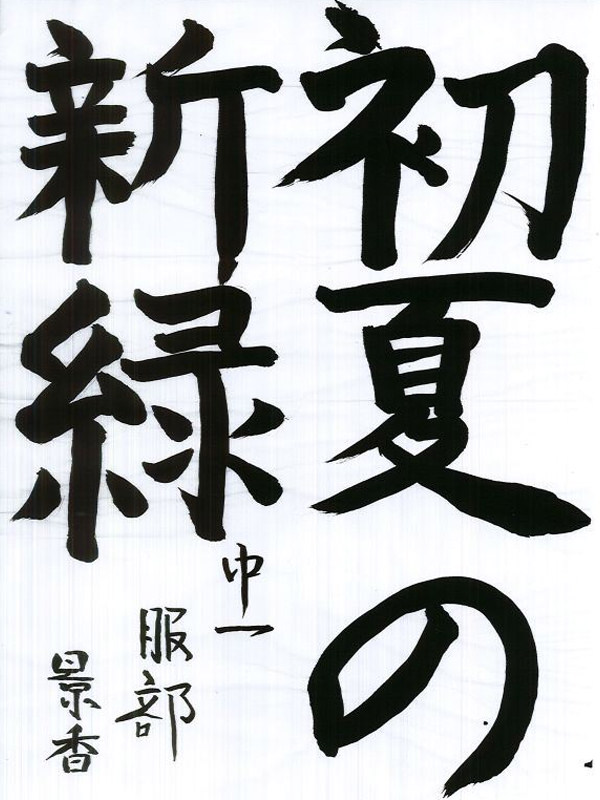 初夏の
新緑
中一
服部
景香